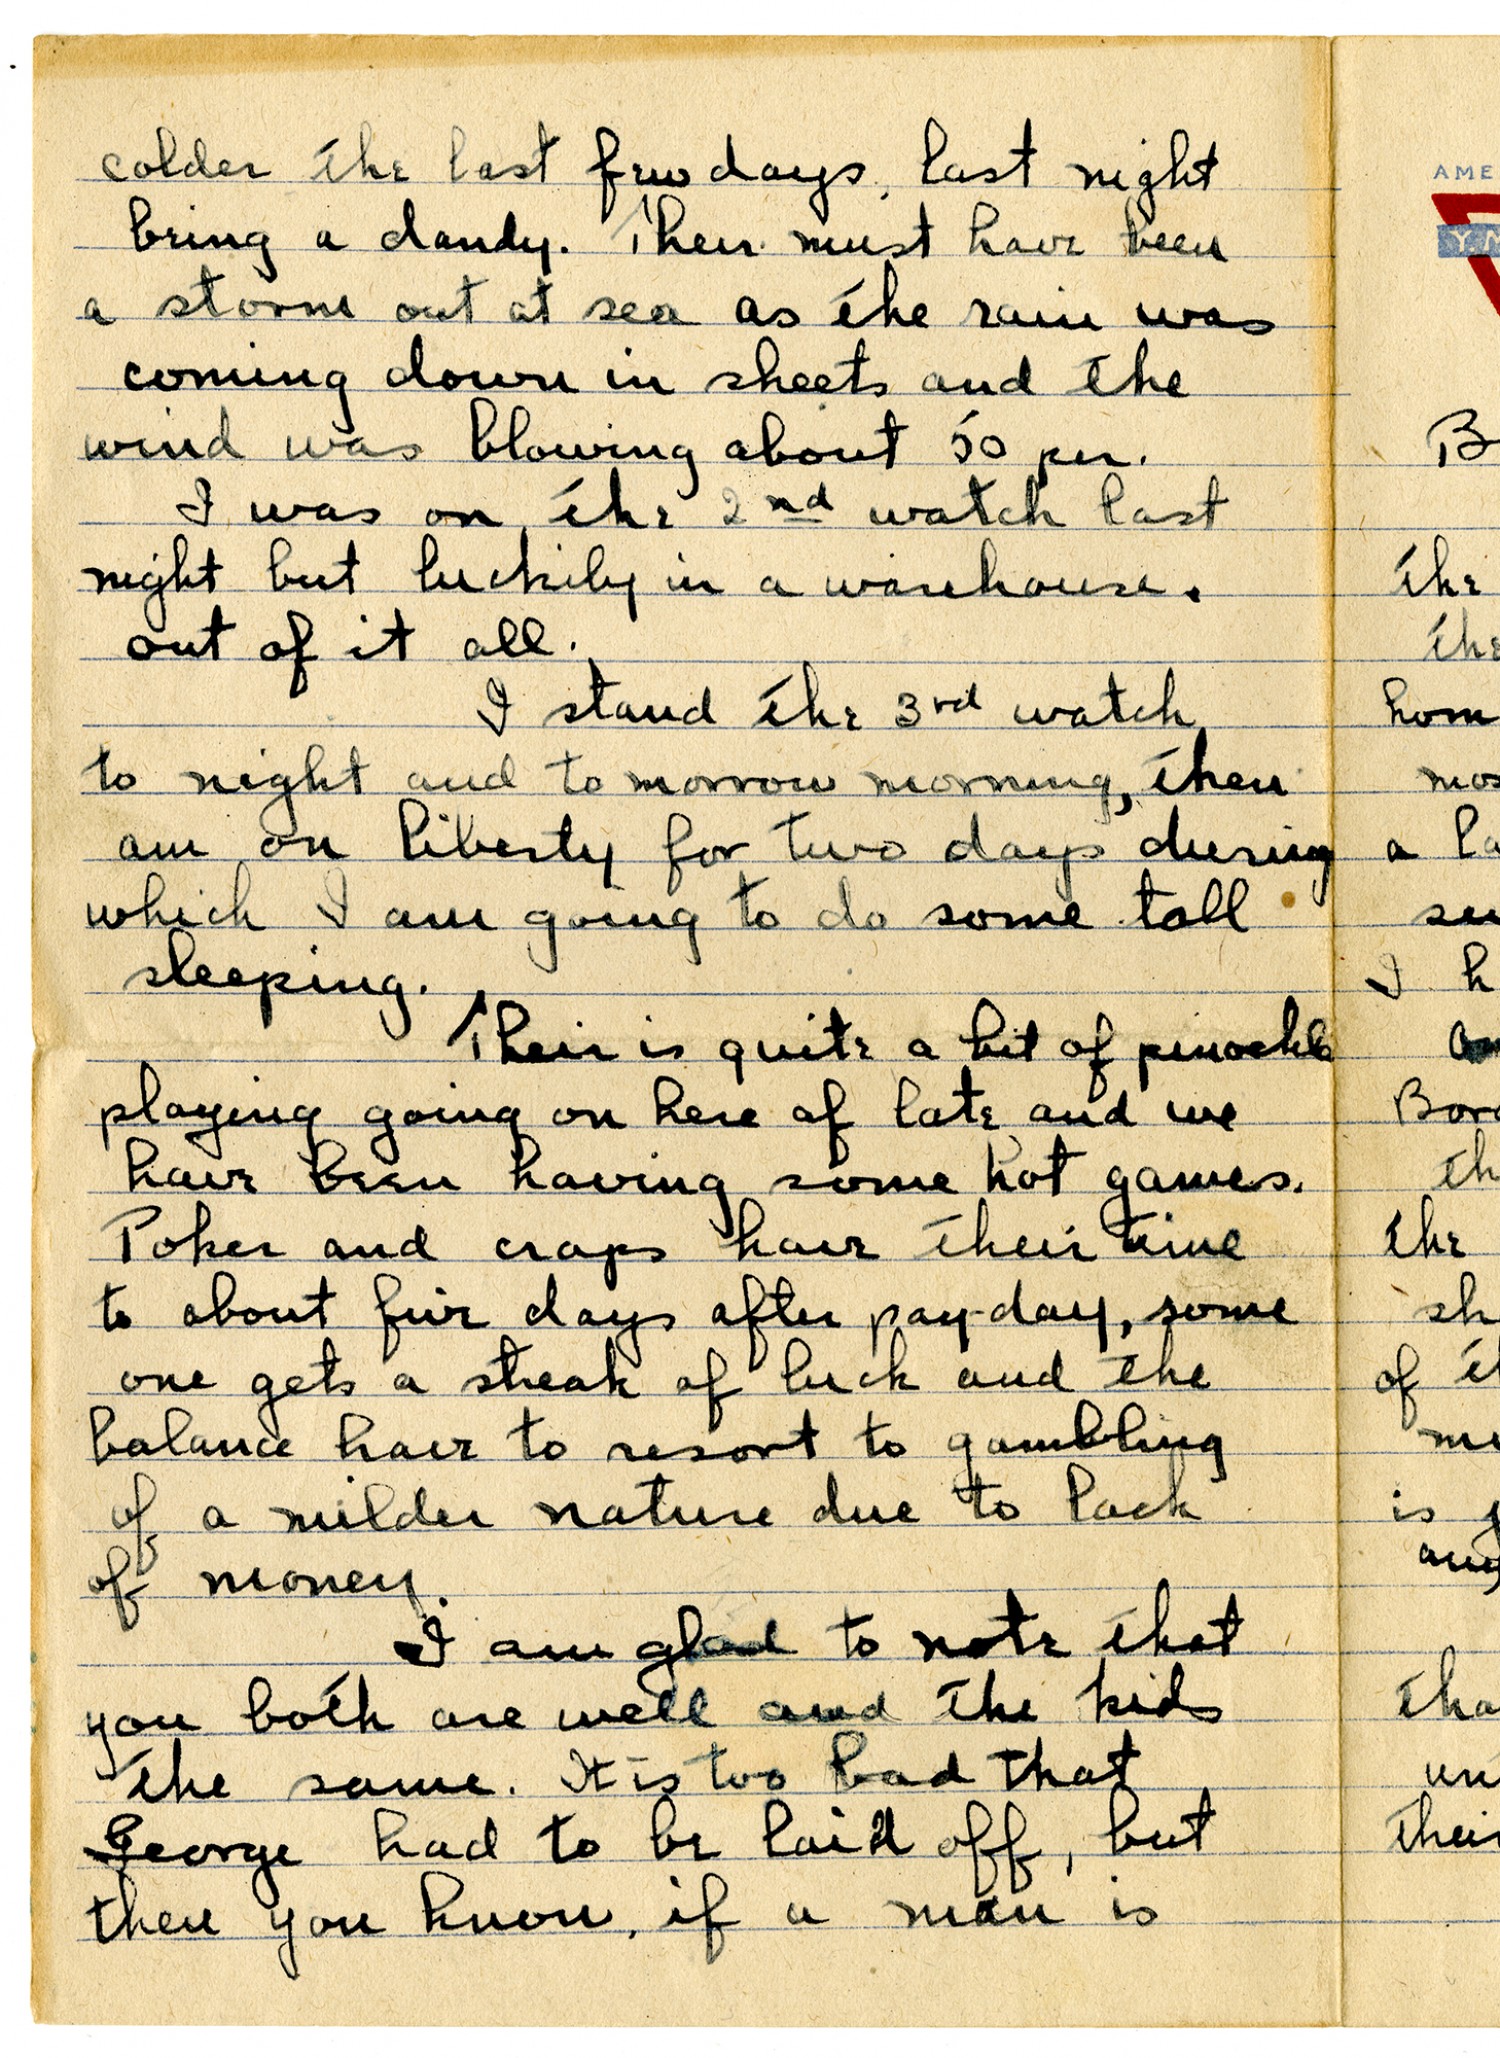 colder the last few days, last night
bring a dandy. Their must have been
a storm out at sea as the rain was
coming down in sheets and the
wind was blowing about 50 per.
I was on the 2nd watch last
night but luckily in a warehouse.
out of it all.
I stand the 3rd watch
to night and tomorrow morning, then
am on liberty for two days during
which I am going to do some tall
sleeping.
Their is quite a bit of pinochle
playing going on here of late and we
have been having some hot games.
Poker and craps have their time
to about five days after pay-day, some
one gets a streak of luck and the
balance have to resort to gambling
of a milder nature due to lack
of money.
I am glad to note that
you both are well and the kids
the same. It is too bad that
George had to be laid off, but
then you know, if a man is
AME
Y.M
B
the
the
hom
mos
a la
I h
Bor
th
the
sh
of th
is
tha
un
their